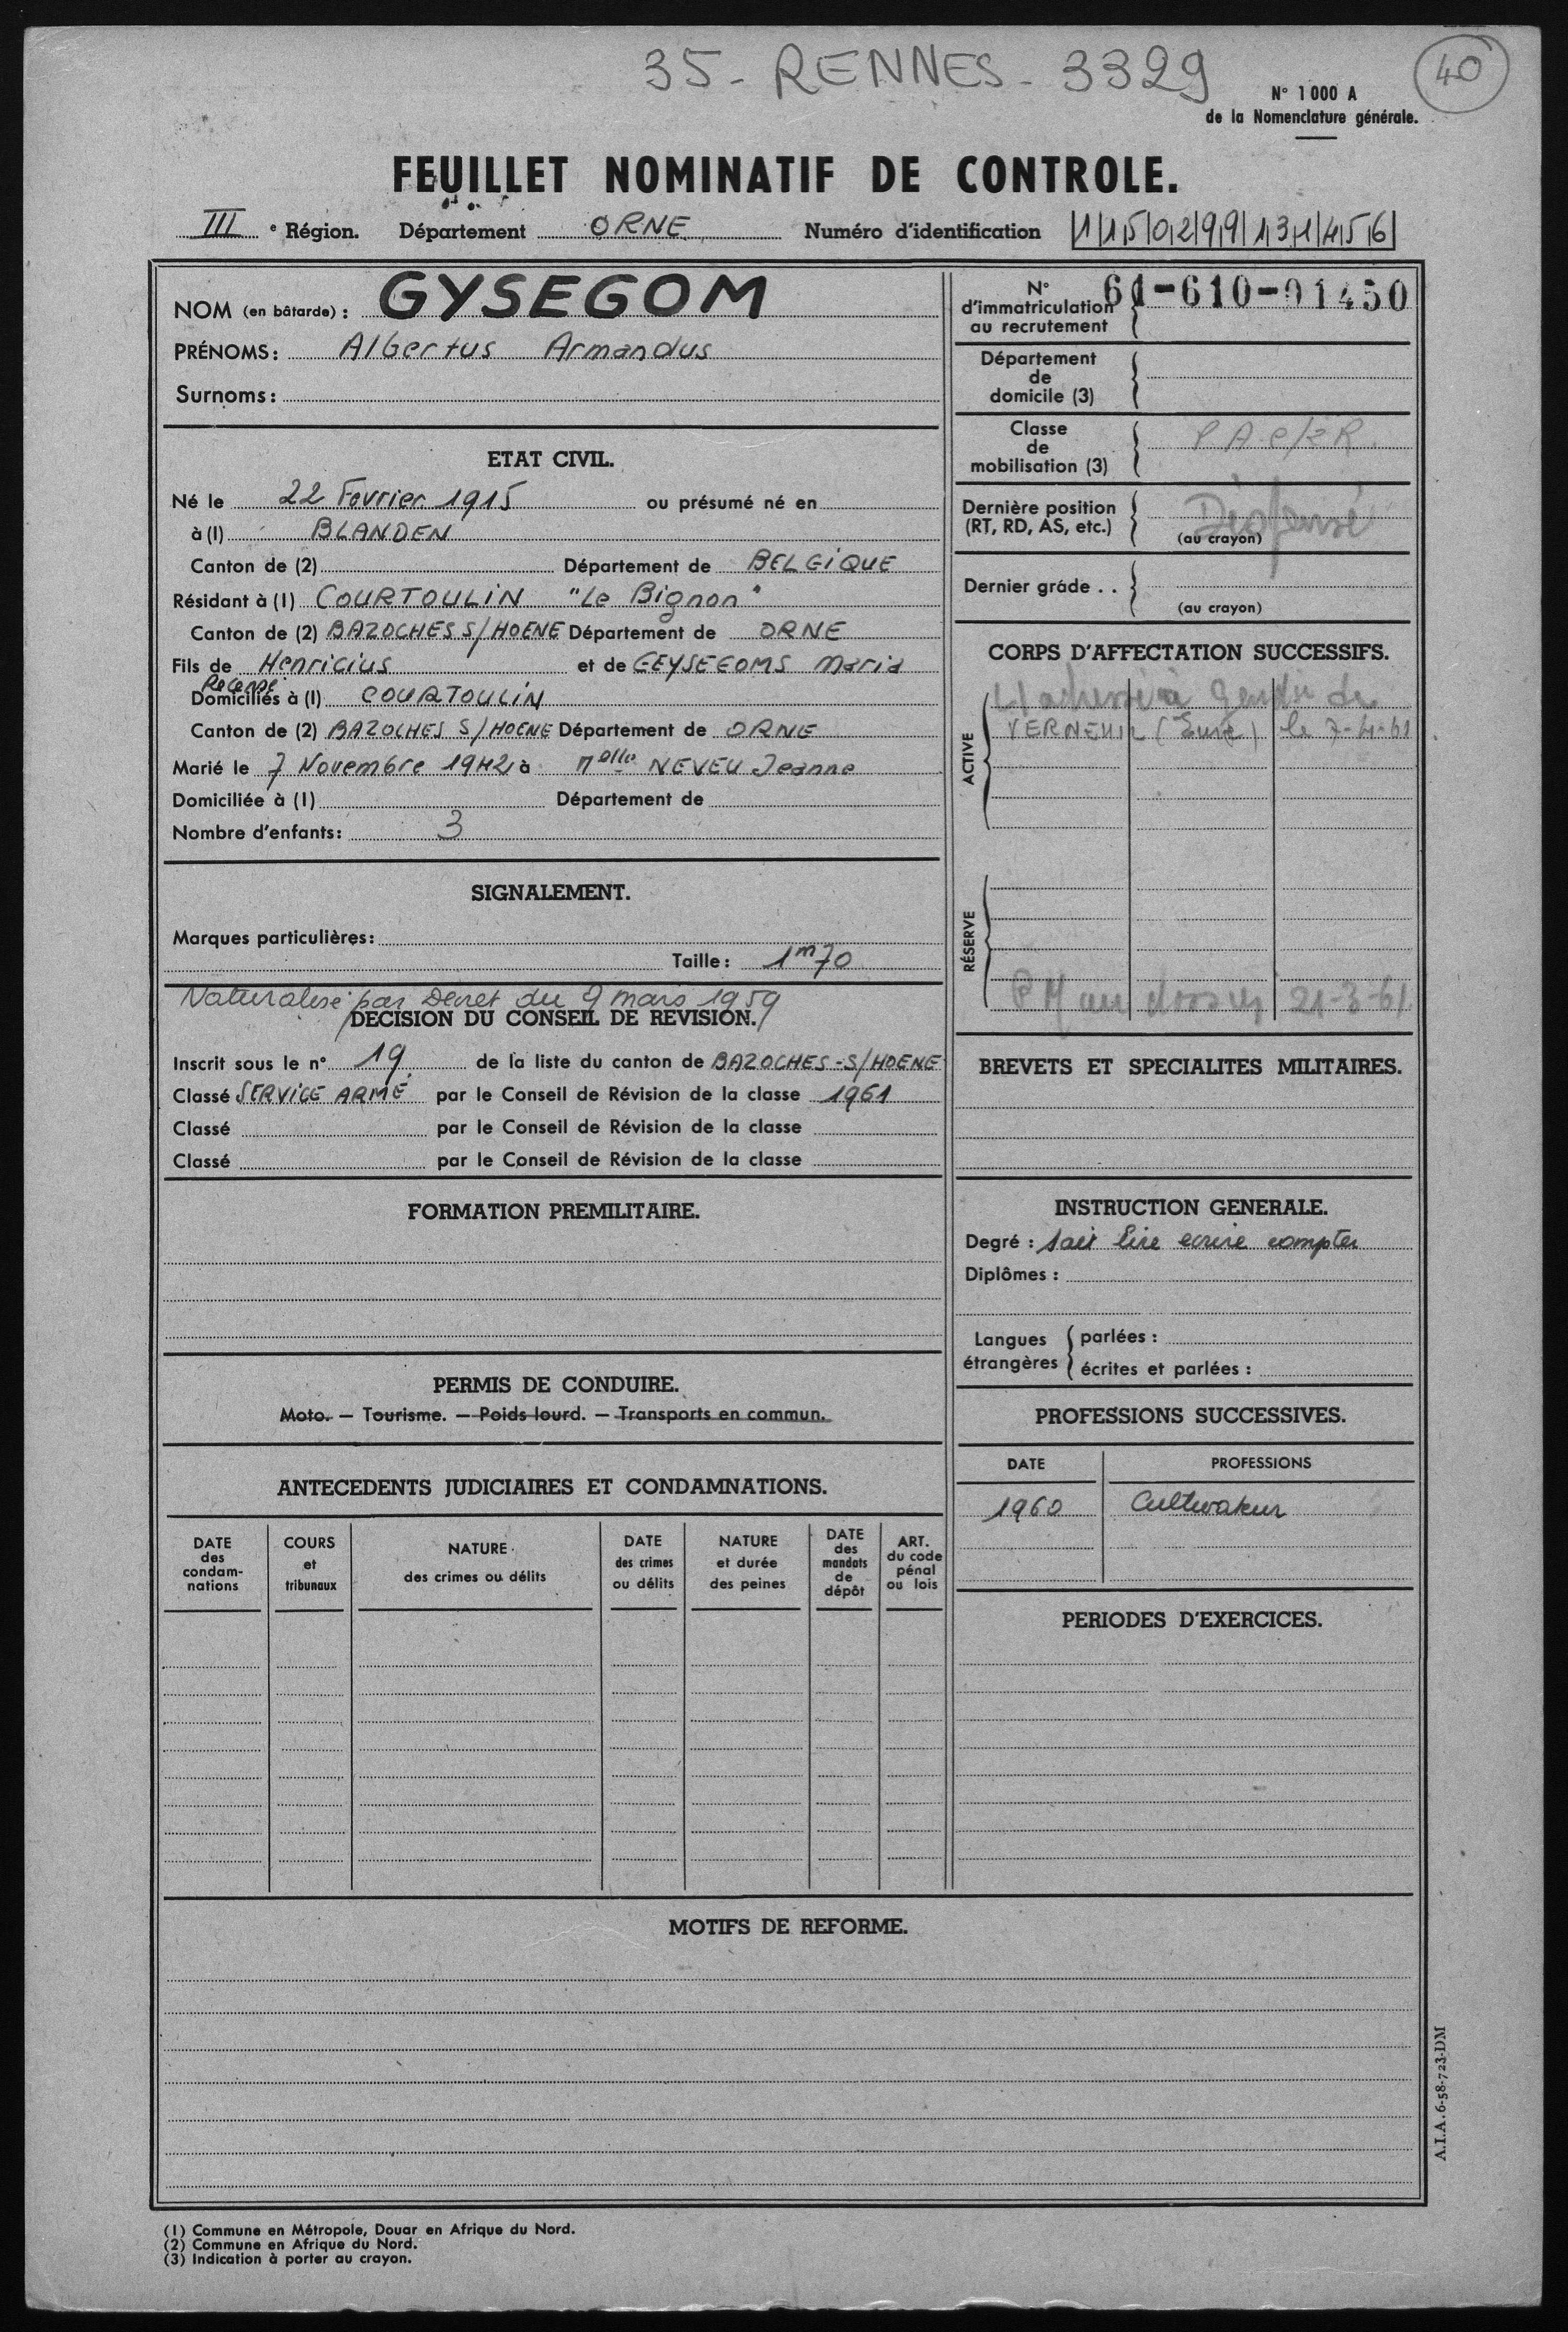 35 - RENNES - 3329
40
N° 1000 A
de la Nomenclature générale.
FEUILLET NOMINATIF DE CONTROLE.
III e Région. Département ORNE Numéro d'identification 1 1 5 0 2 9 9 1 3 1 4 5 6
NOM (en bâtarde) : GYSEGOM
PRÉNOMS : Albertus Armandus
Surnoms :
ETAT CIVIL.
Né le 22 Fevrier 1915 ou présumé né en
à (1) BLANDEN
Canton de (2) Département de BELGIQUE
Résidant à (1) COURTOULIN "Le Bignon"
Canton de (2) BAZOCHES S/HOENE Département de ORNE
Fils de Henricius et de GEYSEGOMS Maria
Recensé
Domiciliés à (1) COURTOULIN
Canton de (2) BAZOCHES S/HOENE Département de ORNE
Marié le 7 Novembre 1942 à Melle NEVEU Jeanne
Domiciliée à (1) Département de
Nombre d'enfants : 3
SIGNALEMENT.
Marques particulières :
Taille : 1m70
Naturalisé par Decret du 9 mars 1959
DECISION DU CONSEIL DE REVISION.
Inscrit sous le n° 19 de la liste du canton de BAZOCHES-S/HOENE
Classé SERVICE ARMÉ par le Conseil de Révision de la classe 1961
Classé par le Conseil de Révision de la classe
Classé par le Conseil de Révision de la classe
FORMATION PREMILITAIRE.
PERMIS DE CONDUIRE.
Moto. — Tourisme. — Poids lourd. — Transports en commun.
ANTECEDENTS JUDICIAIRES ET CONDAMNATIONS.
DATE des condam-nations
COURS et tribunaux
NATURE des crimes ou délits
DATE des crimes ou délits
NATURE et durée des peines
DATE des mandats de dépôt
ART. du code pénal ou lois
N° d'immatriculation au recrutement 61-610-01450
Département de domicile (3)
Classe de mobilisation (3)
Dernière position (RT, RD, AS, etc.)
(au crayon)
Dernier grade . .
(au crayon)
CORPS D'AFFECTATION SUCCESSIFS.
ACTIVE
VERNEUIL (Eure) le 7-4-61
RÉSERVE
21-3-61
BREVETS ET SPECIALITES MILITAIRES.
INSTRUCTION GENERALE.
Degré : sait lire ecrire compter
Diplômes :
Langues étrangères
parlées :
écrites et parlées :
PROFESSIONS SUCCESSIVES.
DATE PROFESSIONS
1960 Cultivateur
PERIODES D'EXERCICES.
MOTIFS DE REFORME.
A.I.A. 6-58-723-DM
(1) Commune en Métropole, Douar en Afrique du Nord.
(2) Commune en Afrique du Nord.
(3) Indication à porter au crayon.